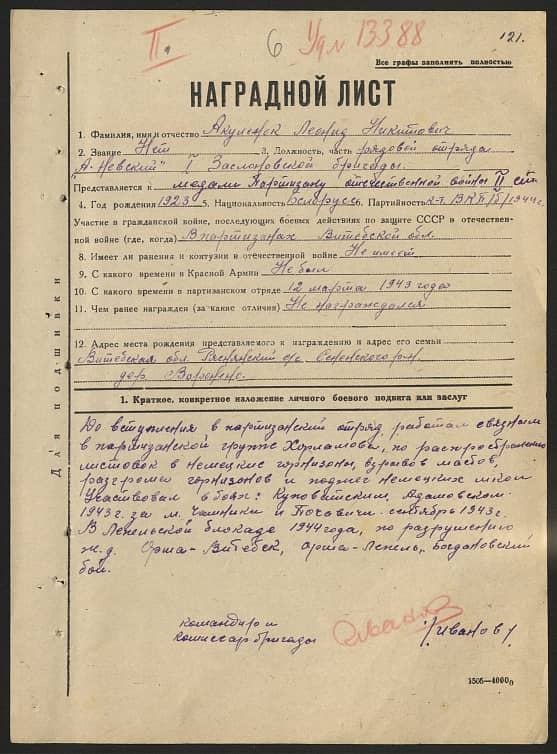 II.
6
Удл 13388
121.
Все графы заполнять полностью
НАГРАДНОЙ ЛИСТ
1. Фамилия, имя и отчество Акуленок Леонид Никитович
2. Звание Нет 3. Должность, часть рядовой отряда
"А. Невский" I Заслоновской бригады
Представляется к медали Партизану отечественной войны II ст
4. Год рождения 1923 5. Национальность белорус 6. Партийность к-т. ВКП/б/ 1944 г.
Участие в гражданской войне, последующих боевых действиях по защите СССР в отечествен-
ной войне (где, когда) В партизанах Витебской обл.
8. Имеет ли ранения и контузии в отечественной войне Не имеет
9. С какого времени в Красной Армии Не был
10. С какого времени в партизанском отряде 12 марта 1943 года
11. Чем ранее награжден (за какие отличия) Не награждался
12. Адрес места рождения представляемого к награждению и адрес его семьи
Витебская обл. с/с. Сеннского р-н
дер.
Для подшивки
1. Краткое, конкретное изложение личного боевого подвига или заслуг
До вступления в партизанский отряд работал связным
в партизанской группе Харламова, по распространению
листовок в немецкие гарнизоны, взрывов мостов,
разгроме гарнизонов и поджег немецких
Участвовал в боях:
1943 г. за м. Чашники и сентябрь 1943 г.
В Лепельской блокаде 1944 года, по разрушению
ж.д. Орша-Витебск, Орша-Лепель, Богдановский
бой.
командир и
комиссар бригады /Иванов/
1505—4000